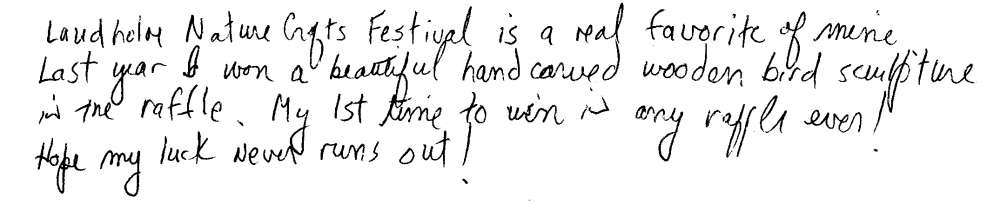 Laudholm Nature Crafts Festival is a real favorite of mine
Last year I won a beautiful hand carved wooden bird sculpture
in the raffle. My 1st time to win in any raffle ever!
Hope my luck never runs out!